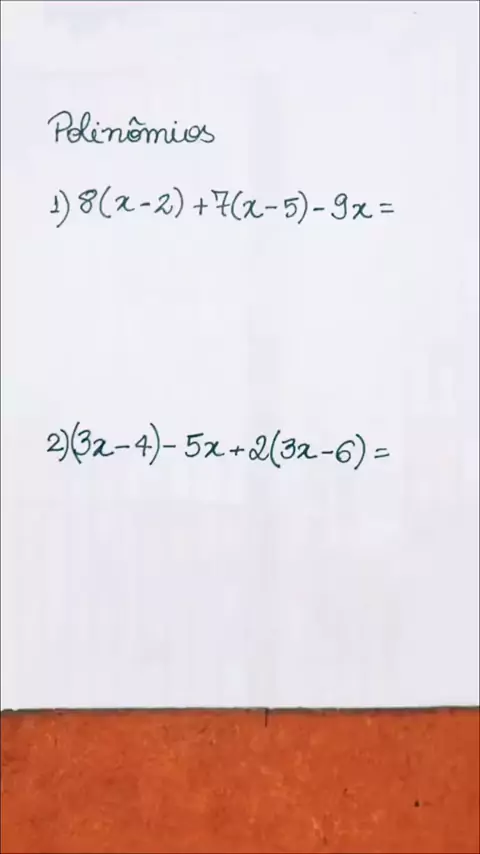 Polinômios
1) 8(x-2)+7(x-5)-9x=
2)(3x-4)-5x+2(3x-6)=